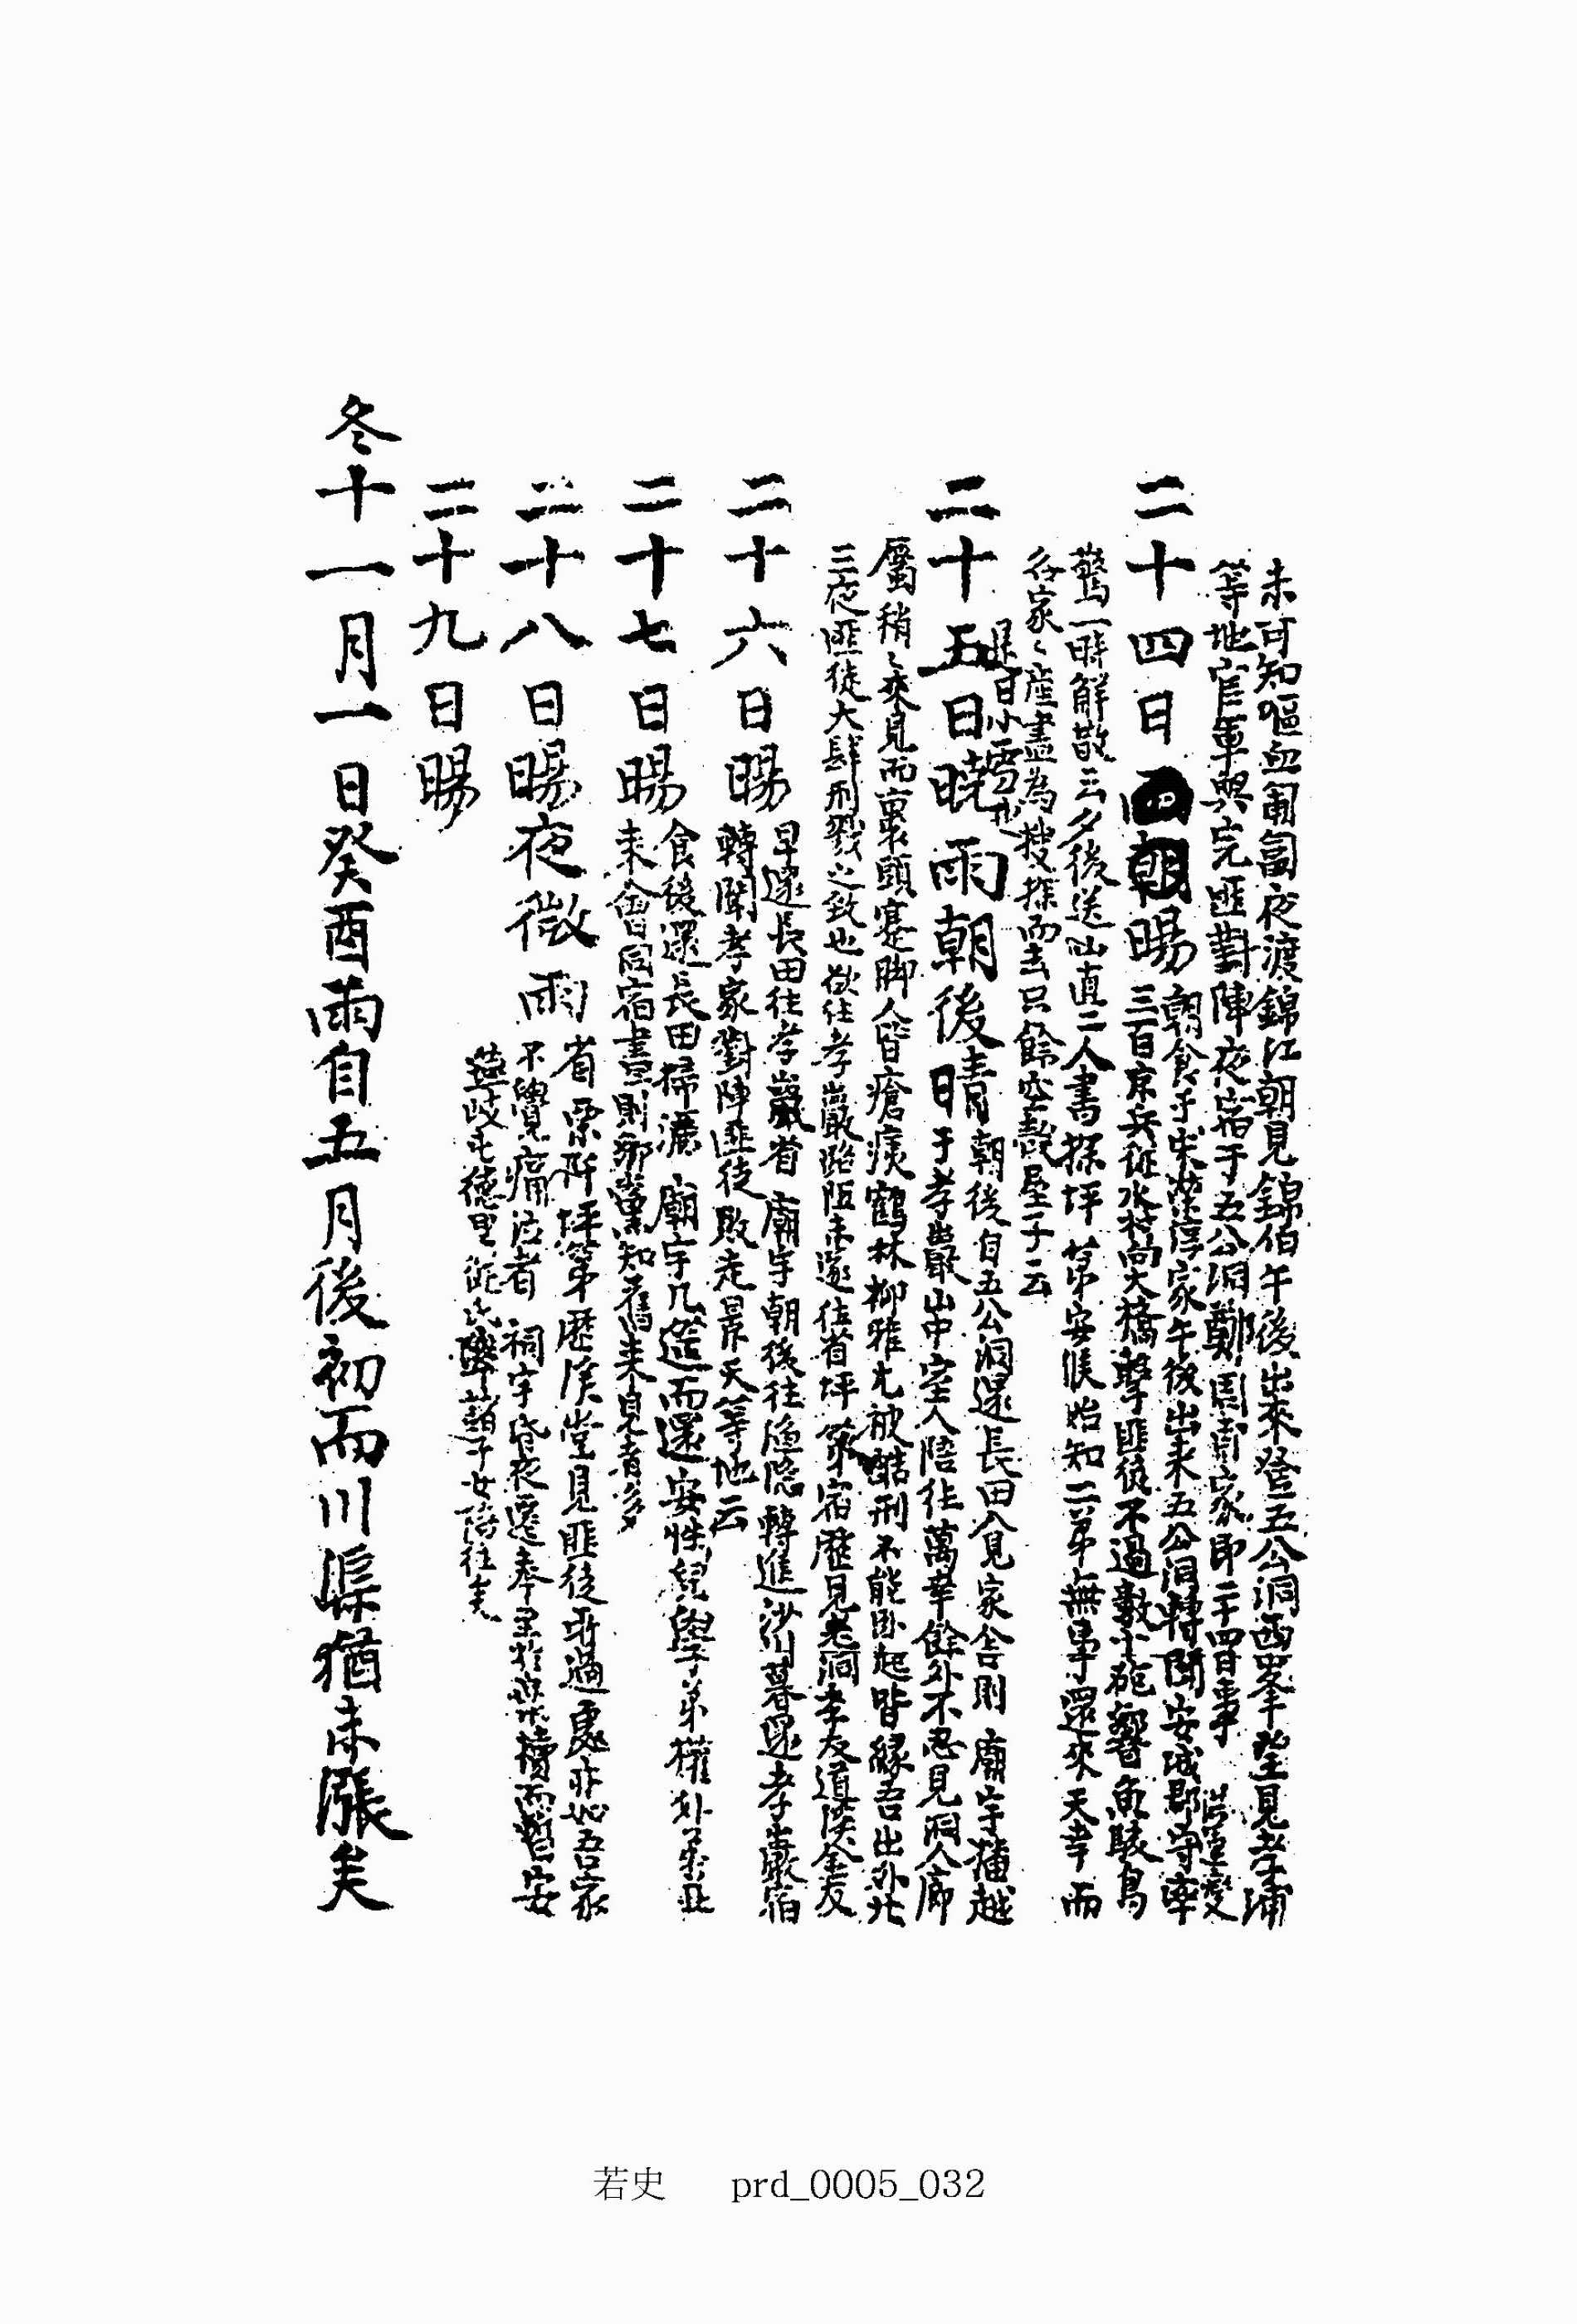 未可知嘔血匍匐夜渡錦江朝見錦伯午後出來登五公洞西峯望見孝浦
等地官軍與完匪對陣夜宿于五公洞鄭周甫家卽二十四日事
二十四日 朝陽 朝食于宋榮淳家午後出來五公洞轉聞安城郡守洪運燮率
三百京兵從水村向大橋擊匪徒不過數十砲響魚駭鳥
驚一時解散云夕後送山直二人書探坪第安候始知二第無事還來天幸而
各家家產盡為搜探而去只餘空殼屋子云
是日小雪也
二十五日曉雨朝後晴 朝後自五公洞還長田入見家舍則 廟宇獲越
日于孝巖山中室人陪往萬幸餘外不忍見洞人廊
屬稍稍來見而裹頭蹇脚人皆瘡痍鶴林柳雅尤被酷刑不能臥起皆緣吾出外廿
三夜匪徒大肆刑戮之致也欲往孝巖路阻未遂往省坪第宿歷見老洞李友道淡金友
二十六日陽 早還長田往孝巖省 廟宇朝後往漁隱轉進沙川暮還孝巖宿
轉聞孝家對陣匪徒敗走景天等地云
二十七日陽 食後還長田掃灑 廟宇几筵而還安性兒學弟權外弟並
來會同宿晝則鄉黨知舊來見者多
二十八日陽夜微雨 省栗所坪第歷侯堂見匪徒所過處非如吾家
不覺痛泣者 祠宇昏夜還奉 於 櫝而暫安
蘆岐屯德里從氏 諸子女陪往矣
二十九日陽
冬十一月一日癸酉雨自五月後初而川渠猶未漲矣
若史 prd_0005_032